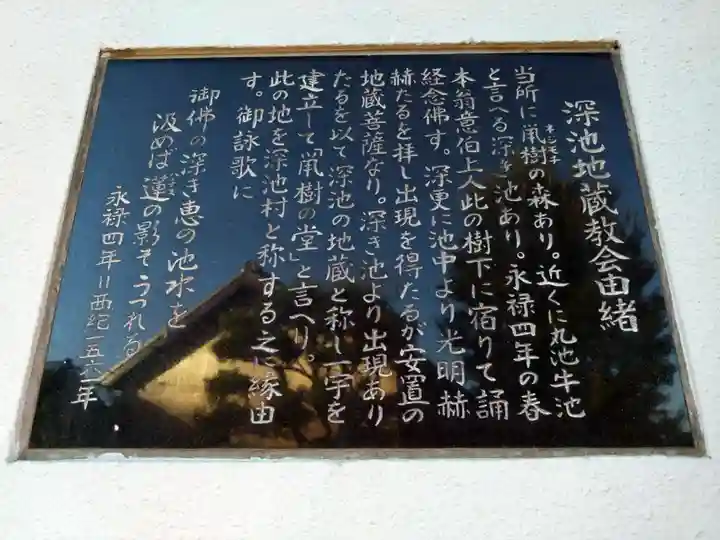 深池地蔵教会由緒
当所に鼡樹の森あり。近くに丸池牛池
ネズモチ
と言へる深き池あり。永禄四年の春
本翁意伯上人此の樹下に宿りて誦
経念佛す。深更に池中より光明赫
赫たるを拝し出現を得たるが安置の
地蔵菩薩なり。深き池より出現あり
たるを以て深池の地蔵と称し一宇を
建立して「鼡樹の堂」と言へり。
此の地を深池村と称する之に縁由
す。御詠歌に
御佛の深き恵の池水を
汲めば蓮の影そうつれる
永禄四年=西紀一五六一年